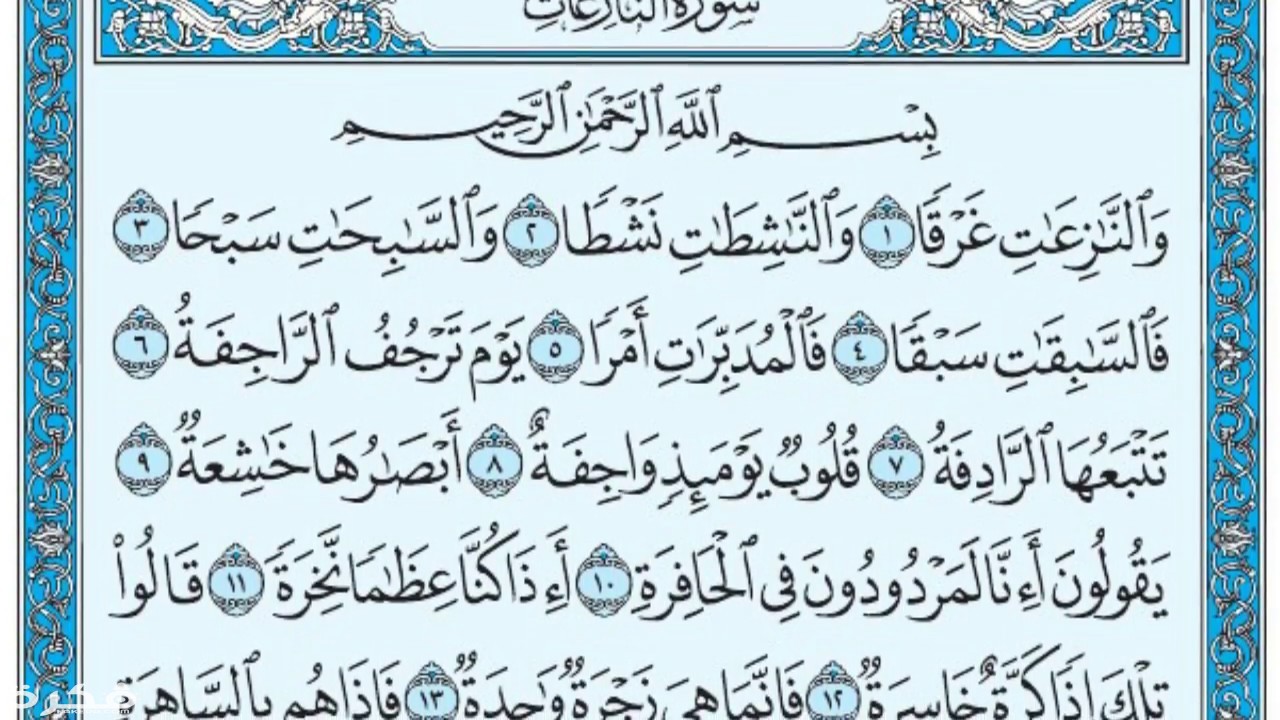 سورة النازعات
بِسْمِ ٱللَّهِ ٱلرَّحْمَٰنِ ٱلرَّحِيمِ
وَٱلنَّٰزِعَٰتِ غَرْقًا ١ وَٱلنَّٰشِطَٰتِ نَشْطًا ٢ وَٱلسَّٰبِحَٰتِ سَبْحًا ٣
فَٱلسَّٰبِقَٰتِ سَبْقًا ٤ فَٱلْمُدَبِّرَٰتِ أَمْرًا ٥ يَوْمَ تَرْجُفُ ٱلرَّاجِفَةُ ٦
تَتْبَعُهَا ٱلرَّادِفَةُ ٧ قُلُوبٌ يَوْمَئِذٍ وَاجِفَةٌ ٨ أَبْصَٰرُهَا خَٰشِعَةٌ ٩
يَقُولُونَ أَءِنَّا لَمَرْدُودُونَ فِى ٱلْحَافِرَةِ ١٠ أَءِذَا كُنَّا عِظَٰمًا نَّخِرَةً ١١ قَالُوا۟
تِلْكَ إِذًا كَرَّةٌ خَاسِرَةٌ ١٢ فَإِنَّمَا هِىَ زَجْرَةٌ وَٰحِدَةٌ ١٣ فَإِذَا هُم بِٱلسَّاهِرَةِ
فكرة